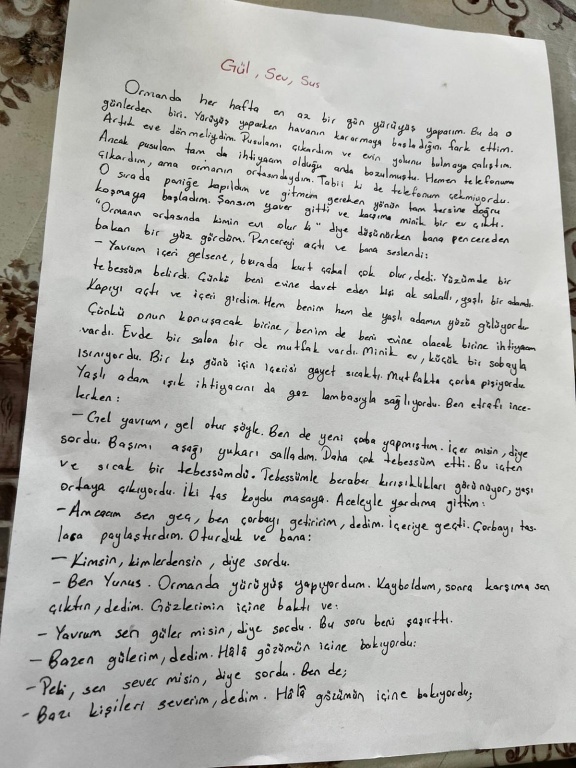 Gül, Sev, Sus
Ormanda her hafta en az bir gün yürüyüş yaparım. Bu da o
günlerden biri. Yürüyüş yaparken havanın kararmaya başladığını fark ettim.
Artık eve dönmeliydim. Pusulamı çıkardım ve evin yolunu bulmaya çalıştım.
Ancak pusulam tam da ihtiyacım olduğu anda bozulmuştu. Hemen telefonumu
çıkardım, ama ormanın ortasındaydım. Tabii ki de telefonum çekmiyordu.
O sırada paniğe kapıldım ve gitmem gereken yönün tam tersine doğru
koşmaya başladım. Şansım yaver gitti ve karşıma minik bir ev çıktı.
"Ormanın ortasında kimin evi olur ki" diye düşünürken bana pencereden
bakan bir yüz gördüm. Pencereyi açtı ve bana seslendi:
- Yavrum içeri gelsene, burada kurt çakal çok olur, dedi. Yüzümde bir
tebessüm belirdi. Çünkü beni evine davet eden kişi ak sakallı, yaşlı bir adamdı.
Kapıyı açtı ve içeri girdim. Hem benim hem de yaşlı adamın yüzü gülüyordu
Çünkü onun konuşacak birine, benim de beni evine alacak birine ihtiyacım
vardı. Evde bir salon bir de mutfak vardı. Minik ev, küçük bir sobayla
ısınıyordu. Bir kış günü için içerisi gayet sıcaktı. Mutfakta çorba pişiyordu
Yaşlı adam ışık ihtiyacını da gaz lambasıyla sağlıyordu. Ben etrafı ince-
lerken:
- Gel yavrum, gel otur şöyle. Ben de yeni çorba yapmıştım. İçer misin, diye
sordu. Başımı aşağı yukarı salladım. Daha çok tebessüm etti. Bu içten
ve sıcak bir tebessümdü. Tebessümle beraber kırışıklıkları görünüyor, yaşı
ortaya çıkıyordu. İki tas koydu masaya. Aceleyle yardıma gittim:
- Amcacım sen geç, ben çorbayı getiririm, dedim. İçeriye geçti. Çorbayı tas-
lara paylaştırdım. Oturduk ve bana:
- Kimsin, kimlerdensin, diye sordu.
- Ben Yunus. Ormanda yürüyüş yapıyordum. Kayboldum, sonra karşıma sen
çıktın, dedim. Gözlerimin içine baktı ve:
- Yavrum sen güler misin, diye sordu. Bu soru beni şaşırttı.
- Bazen gülerim, dedim. Hâlâ gözümün içine bakıyordu:
- Peki, sen sever misin, diye sordu. Ben de;
- Bazı kişileri severim, dedim. Hâlâ gözümün içine bakıyordu;